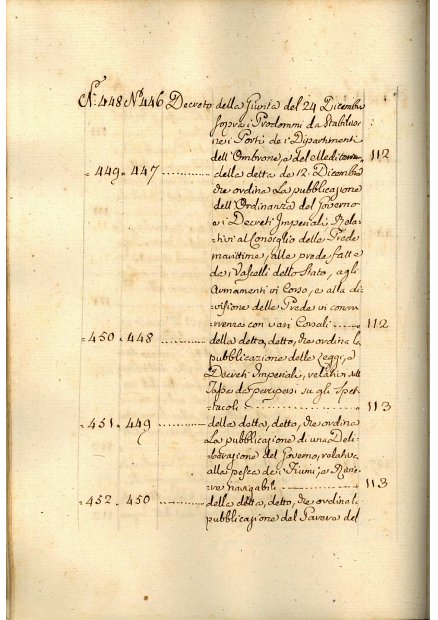 N.° 448 N.° 446 Decreto della Giunta del 24 Dicembre
sopra i Prodommi da Stabilirsi
ne i Porti de i Dipartimenti
dell'Ombrone, e del Mediterra. 112
" 449 " 447 .......... della detta de 12. Dicembre
che ordina La pubblicazione
dell'Ordinanza del Governo
e i Decreti Imperiali Rela-
tivi al Consiglio delle Prede
marittime, alle prede fatte
da i Vascelli dello Stato, agli
Armamenti in Corso, e alla di-
visione delle Prede in
con vari Corsali ...... 112
" 450 " 448 .......... della detta, detto, che ordina la
pubblicazione delle Leggi, e
Decreti Imperiali, relativi alle
Tasse da percipersi su gli Spet-
tacoli .......... 113
" 451 " 449 .......... della detta, detto, che ordina
La pubblicazione di una Deli-
berazione del Governo, relativa
alla pesca de i Fiumi, e Rivie-
re navigabili .......... 113
" 452 " 450 .......... della detta, detto, che ordina la
pubblicazione del Parere del